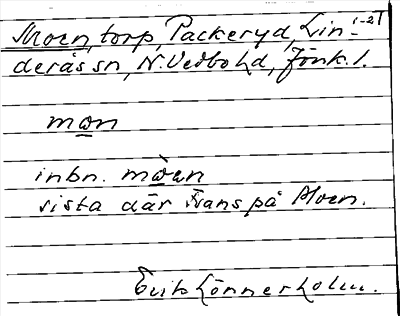 Moen, torp, Packeryd, Lin-
deräs sn, N. Vedbo hd, Jönk. l.
mon
inbn. mòen
sista där Frans på Moen.
Erik Lönnerholm.